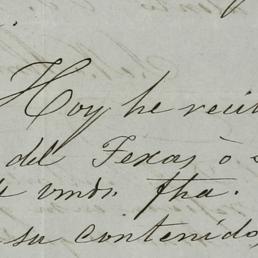 Hoy he recib
del Texas ò s
de vmds. fha.
su contenido,